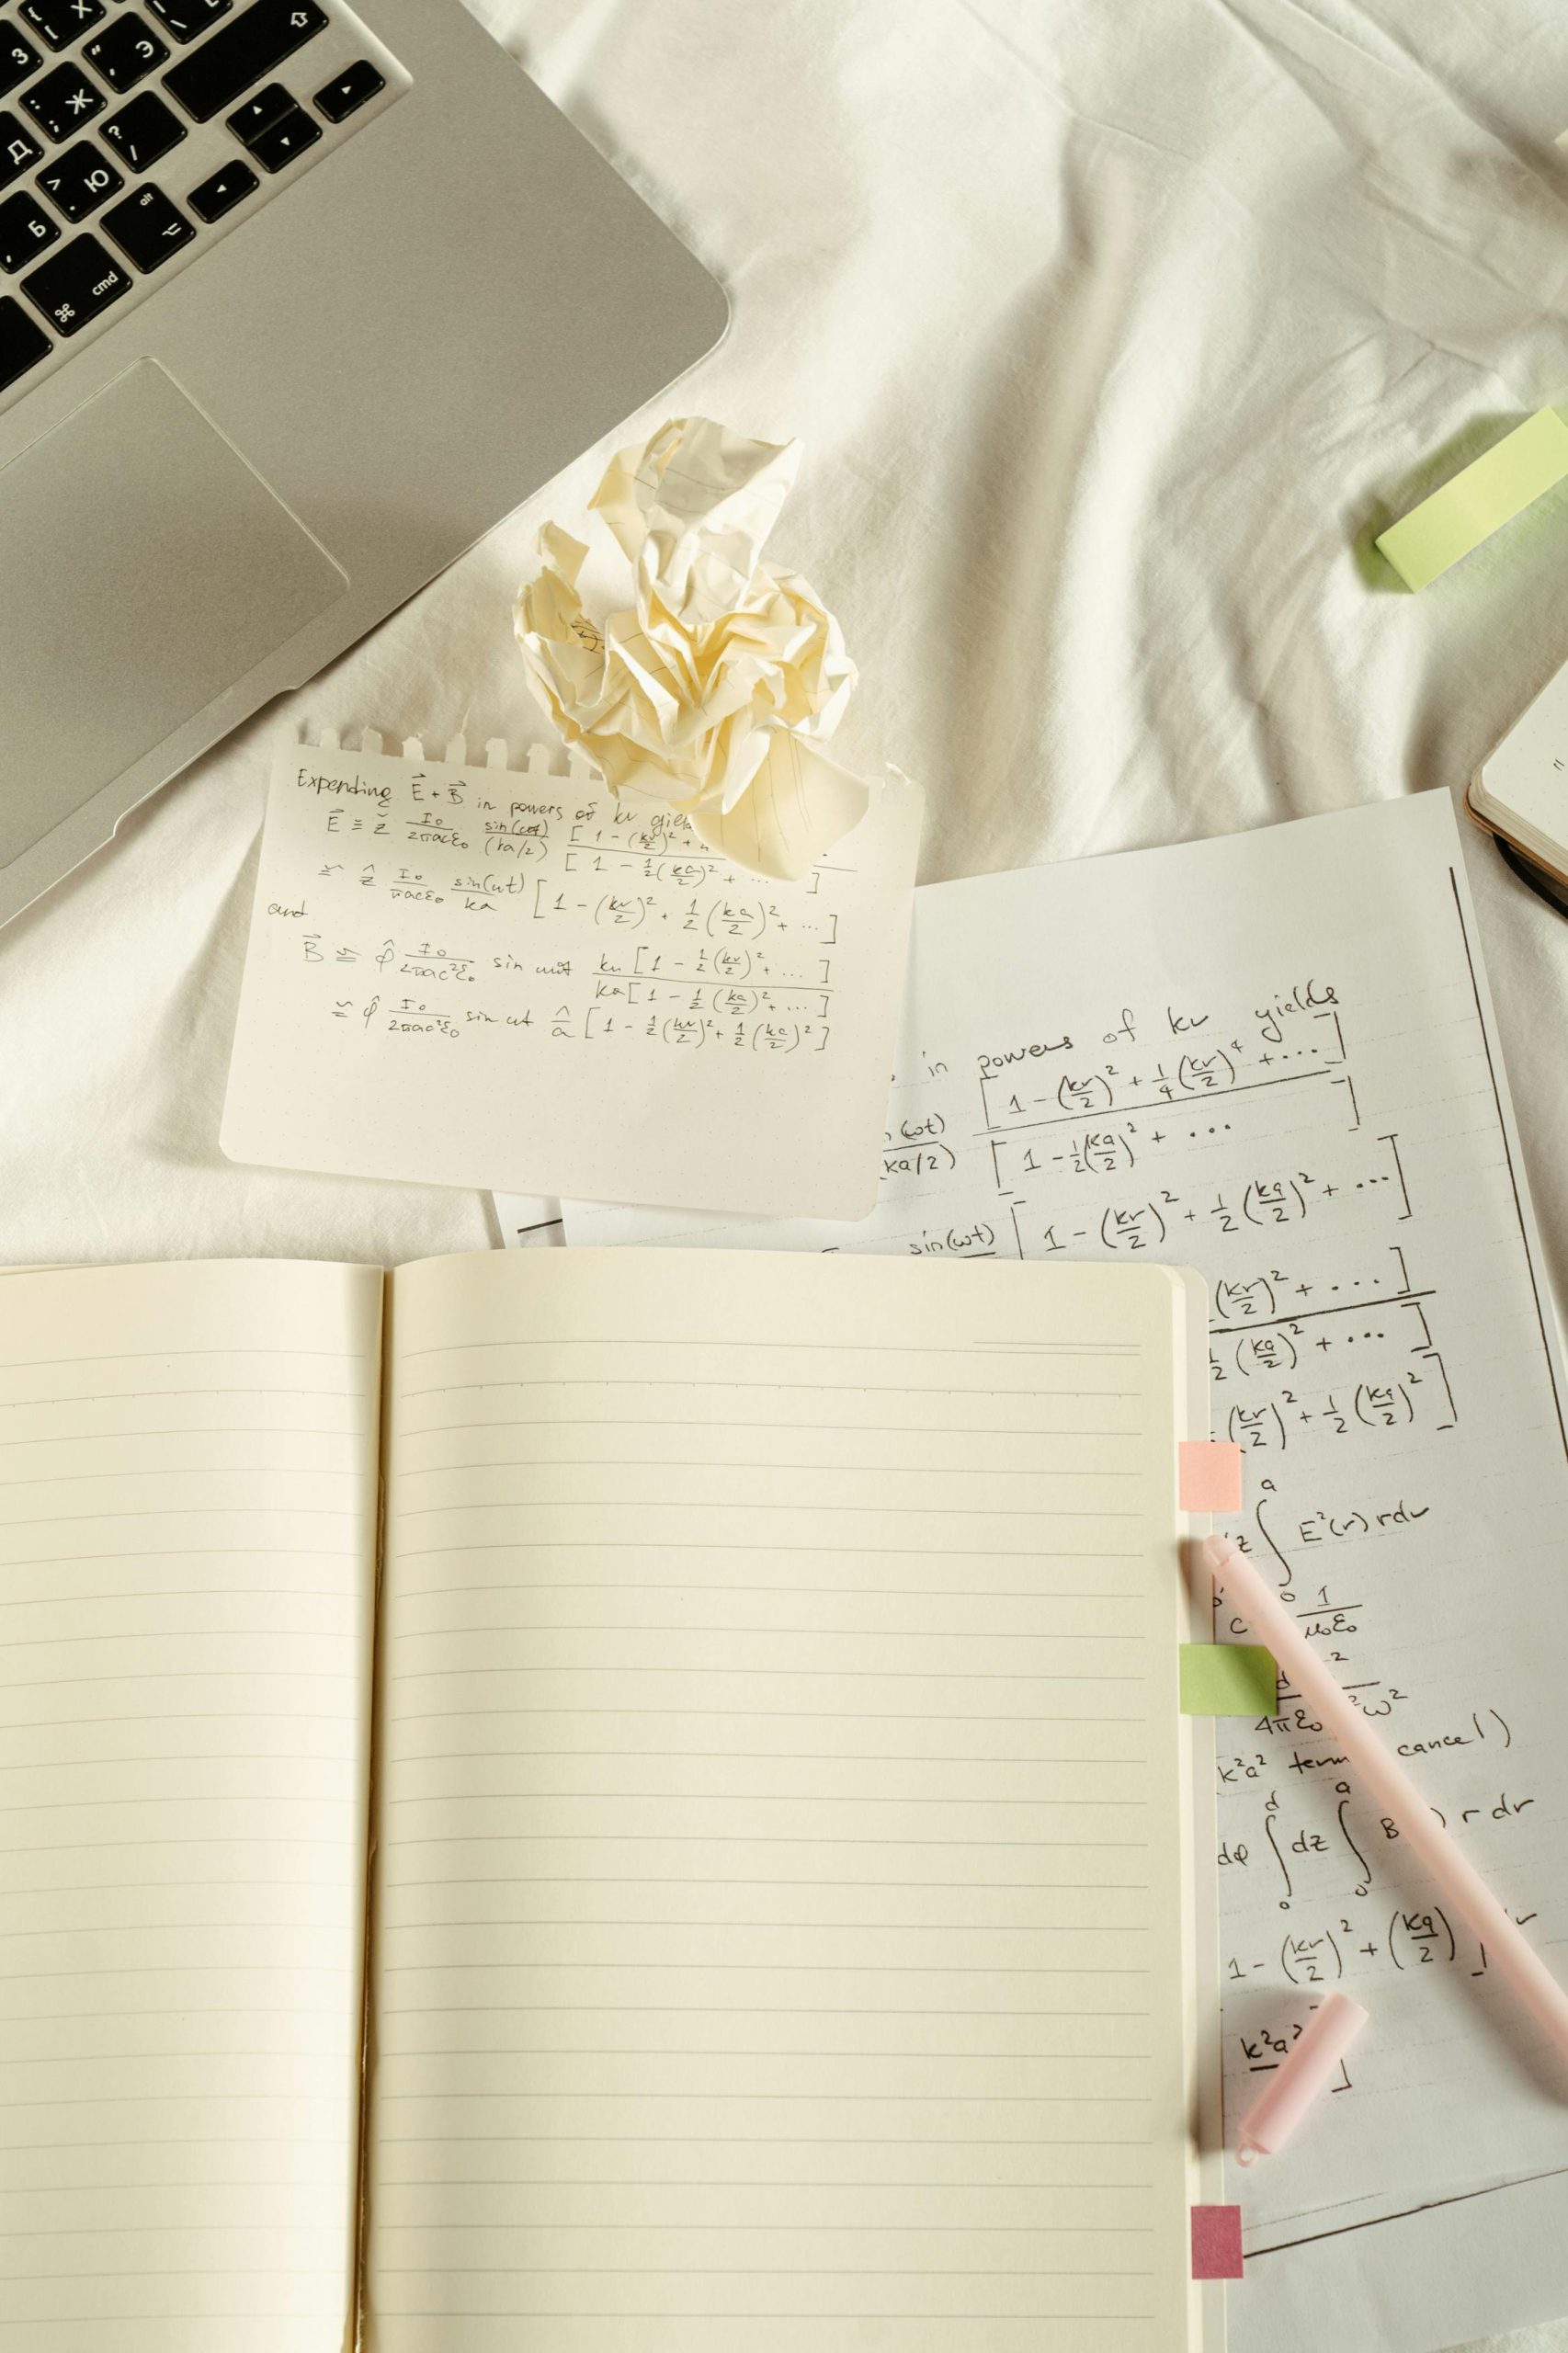 { [ Х
} ] Ъ
| \ Ё
З
" ' Э
⇧
: ; Ж
? /
▲
▶
Д
> . Ю
◀
▼
, Б
alt ⌥
⌘ cmd
Expending E⃗ + B⃗ in powers of kr
E⃗ ≅ ẑ I₀/2πacε₀ sin(ωt)/(ka/2) [1 - (kr/2)² + / [1 - ½(ka/2)² + ...]
≃ ẑ I₀/πacε₀ sin(ωt)/ka [1 - (kr/2)² + ½(ka/2)² + ...]
and
B⃗ ≅ φ̂ I₀/2πac²ε₀ sin ωt kr[1 - ½(kr/2)² + ...] / ka[1 - ½(ka/2)² + ...]
≃ φ̂ I₀/2πac²ε₀ sin ωt r/a [1 - ½(kr/2)² + ½(ka/2)²]
in powers of kr yields
(ωt)/ka/2) [1 - (kr/2)² + ¼(kr/2)⁴ + ...] / [1 - ½(ka/2)² + ...]
sin(ωt) [1 - (kr/2)² + ½(ka/2)² + ...]
(kr/2)² + ...] / ½(ka/2)² + ...]
(kr/2)² + ½(ka/2)²]
z ∫₀ᵃ E²(r) rdr
c 1/μ₀ε₀
d ² / 4πε₀ ²ω²
k²a² term cancel)
dφ ∫₀ᵈ dz ∫₀ᵃ B ) r dr
1 - (kr/2)² + (ka/2) ]
k²a² ]